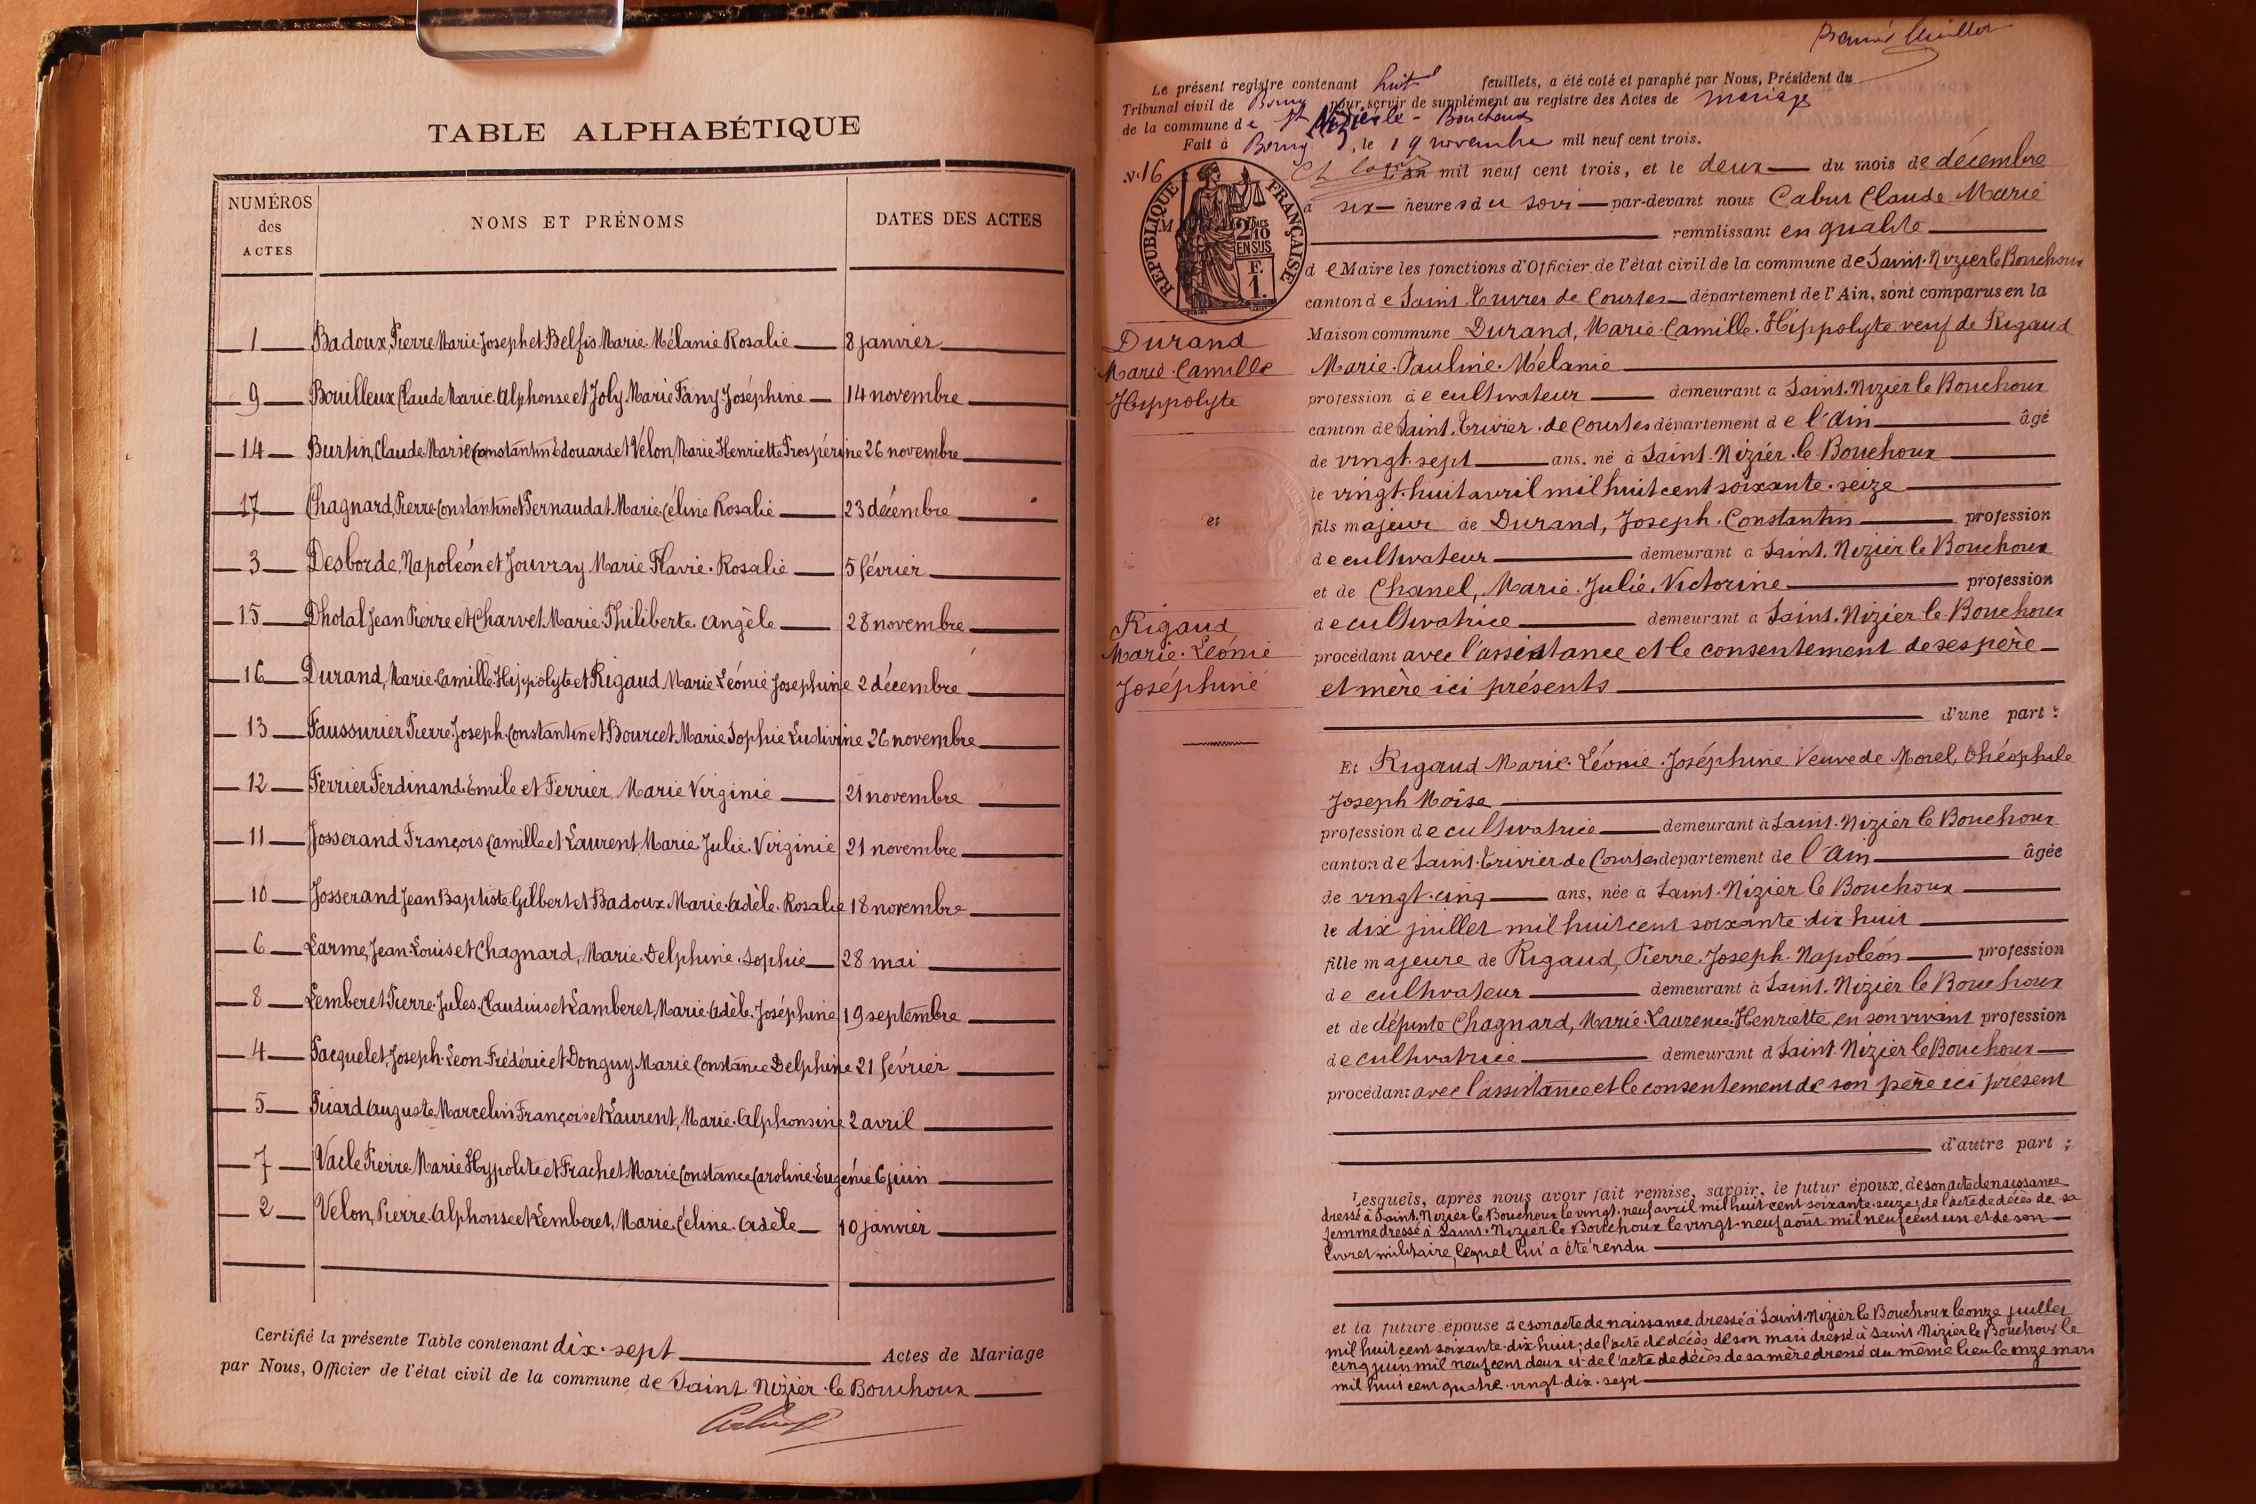 TABLE ALPHABÉTIQUE
NUMÉROS des ACTES
NOMS ET PRÉNOMS
DATES DES ACTES
1 Badoux, Pierre Marie Joseph et Belfis Marie Mélanie Rosalie 8 janvier
9 Bouilleux Claude Marie Alphonse et Joly Marie Fany Joséphine 14 novembre
14 Burtin, Claude Marie Constantin Edouard et Vélon, Marie Henriette Prospérine 26 novembre
17 Chagnard, Pierre Constantin et Pernaudat Marie Céline Rosalie 23 décembre
3 Desborde, Napoléon et Jouvray Marie Flavie Rosalie 5 février
15 Dhotal Jean Pierre et Charvet Marie Philiberte Angèle 28 novembre
16 Durand, Marie Camille Hippolyte et Rigaud Marie Léonie Josephine 2 décembre
13 Faussurier Pierre Joseph Constantin et Bourcet Marie Sophie Ludivine 26 novembre
12 Ferrier Ferdinand Emile et Ferrier Marie Virginie 21 novembre
11 Josserand François Camille et Laurent, Marie Julie Virginie 21 novembre
10 Josserand Jean Baptiste Gilbert et Badoux Marie Adèle Rosalie 18 novembre
6 Larme, Jean Louis et Chagnard, Marie Delphine Sophie 28 mai
8 Lemberet Pierre Jules Claudius et Lamberet, Marie Adèle Joséphine 19 septembre
4 Pacquelet, Joseph Leon Frédéric et Donguy Marie Constance Delphine 21 février
5 Piard Auguste Marcelin François et Laurent, Marie Alphonsine 2 avril
7 Vacle Pierre Marie Hypolite et Frachet Marie Constance Caroline Eugénie 6 juin
2 Velon, Pierre Alphonse et Lemberet, Marie Céline Adèle 10 janvier
Certifié la présente Table contenant dix-sept Actes de Mariage
par Nous, Officier de l'état civil de la commune de Saint Nizier le Bouchoux
Le présent registre contenant huit feuillets, a été coté et paraphé par Nous, Président du
Tribunal civil de Bourg pour servir de supplément au registre des Actes de mariage
de la commune de St Nizier le Bouchoux
Fait à Bourg, le 19 novembre mil neuf cent trois.
N° 16
RÉPUBLIQUE FRANÇAISE
2/10 EN SUS
F. 1.
L'an mil neuf cent trois, et le deux du mois de décembre
à six heures du soir par-devant nous Cabut Claude Marie
remplissant en qualité
de Maire les fonctions d'Officier de l'état civil de la commune de Saint-Nizier le Bouchoux
canton de Saint Trivier de Courtes département de l'Ain, sont comparus en la
Maison commune Durand, Marie Camille Hippolyte veuf de Rigaud
Marie Pauline Mélanie
Durand
Marie Camille
Hippolyte
et
Rigaud
Marie Léonie
Joséphine
profession de cultivateur demeurant à Saint-Nizier le Bouchoux
canton de Saint Trivier de Courtes département de l'Ain âgé
de vingt-sept ans, né à Saint-Nizier le Bouchoux
le vingt-huit avril mil huit cent soixante-seize
fils majeur de Durand, Joseph Constantin profession
de cultivateur demeurant à Saint-Nizier le Bouchoux
et de Chanel, Marie Julie, Victorine profession
de cultivatrice demeurant à Saint-Nizier le Bouchoux
procédant avec l'assistance et le consentement de ses père
et mère ici présents
d'une part ;
Et Rigaud Marie Léonie Joséphine Veuve de Morel, Théophile
Joseph Moïse
profession de cultivatrice demeurant à Saint-Nizier le Bouchoux
canton de Saint-Trivier de Courtes département de l'Ain âgée
de vingt-cinq ans, née à Saint-Nizier le Bouchoux
le dix juillet mil huit cent soixante-dix huit
fille majeure de Rigaud, Pierre Joseph Napoléon profession
de cultivateur demeurant à Saint-Nizier le Bouchoux
et de défunte Chagnard, Marie Laurence Henriette en son vivant profession
de cultivatrice demeurant à Saint-Nizier le Bouchoux
procédant avec l'assistance et le consentement de son père ici présent
d'autre part ;
Lesquels, après nous avoir fait remise, savoir, le futur époux, de son acte de naissance
dressé à Saint-Nizier le Bouchoux le vingt-neuf avril mil huit cent soixante-seize, de l'acte de décès de sa
femme dressé à Saint-Nizier le Bouchoux le vingt-neuf août mil neuf cent un et de son
livret militaire, lequel lui a été rendu
et la future épouse de son acte de naissance dressé à Saint-Nizier le Bouchoux le onze juillet
mil huit cent soixante-dix-huit ; de l'acte de décès de son mari dressé à Saint-Nizier le Bouchoux le
cinq juin mil neuf cent deux et de l'acte de décès de sa mère dressé au même lieu le onze mars
mil huit cent quatre-vingt-dix-sept